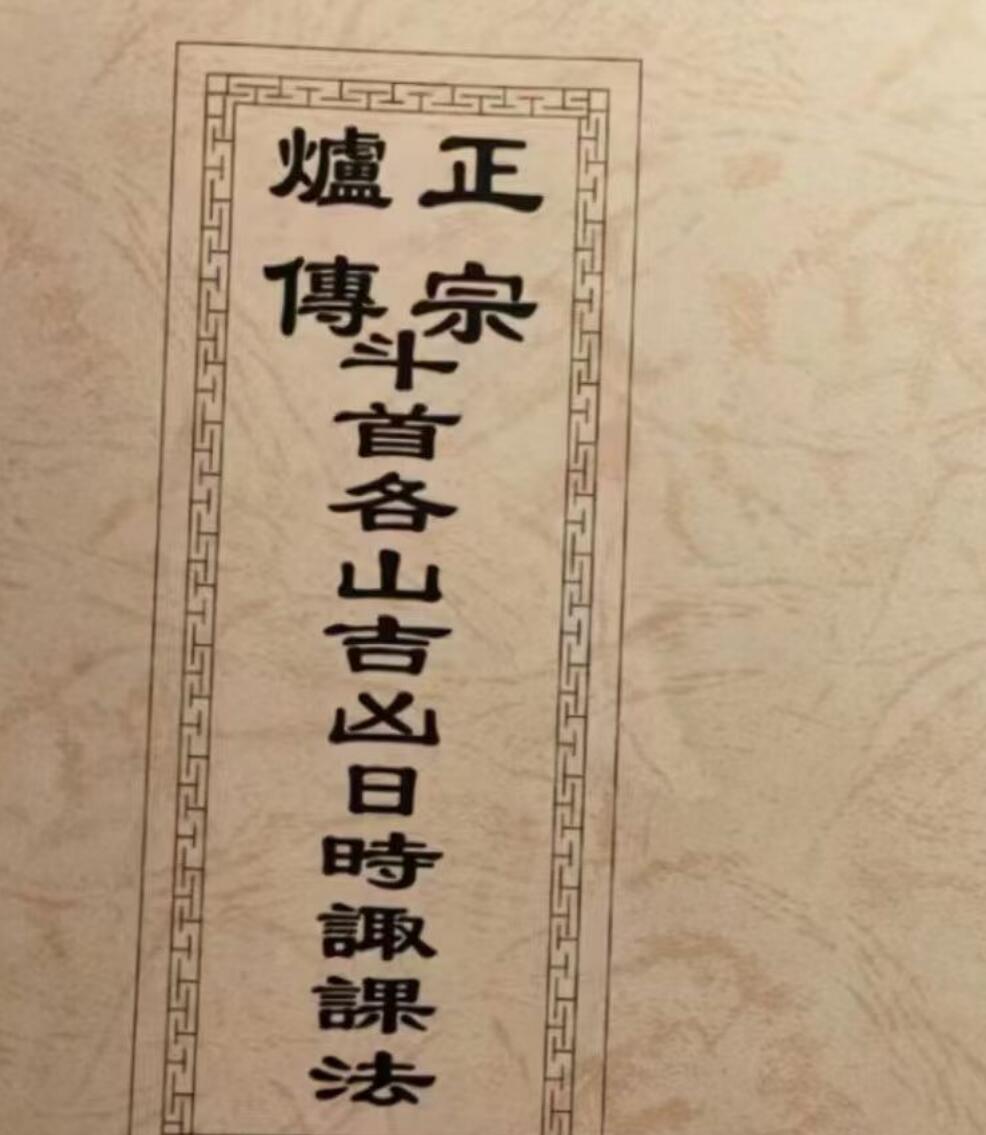 正宗
爐傳
斗首各山吉凶日時諏課法